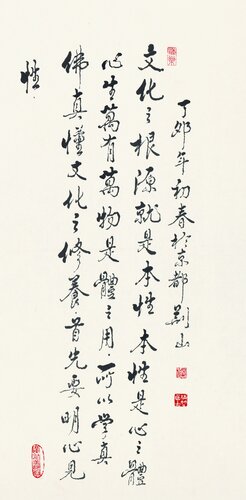 丁卯年初春於京都荊山
文化之根源就是本性本性是心之體
心生萬有萬物是體之用，所以學真
佛真懂文化之修養，首先要明心見
性。